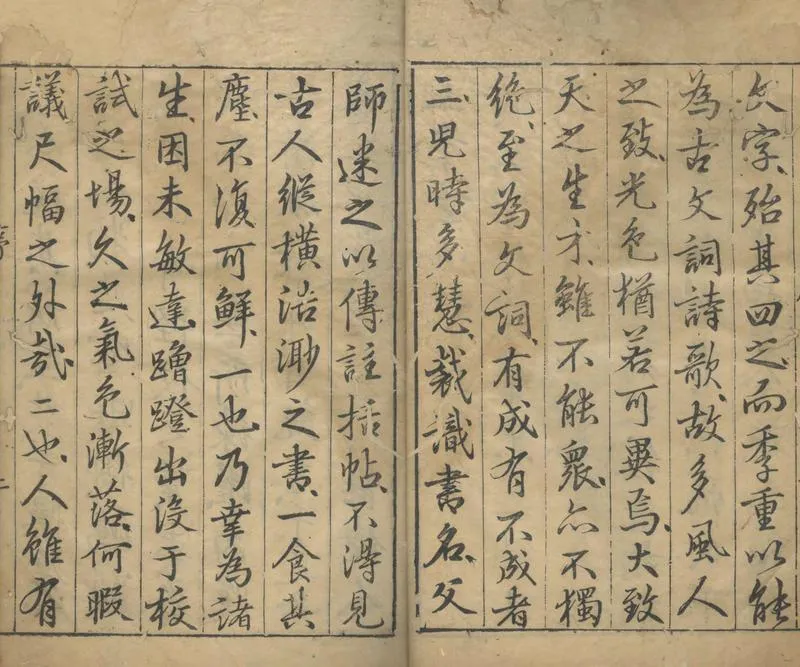 文字、殆其四之而季重以能
為古文詞詩歌、故多風人
之致、光色猶若可異焉、大致
天之生才、雖不能眾、亦不獨
絕、至為文詞、有成有不成者
三、兒時多慧、裁識書名、父
師迷之以傳註括帖、不得見
古人縱橫浩渺之書、一食其
塵、不復可鮮、一也、乃幸為諸
生、困未敏達、蹭蹬出沒于校
試之場、久之氣色漸落、何暇
議尺幅之外哉、二也、人雖有